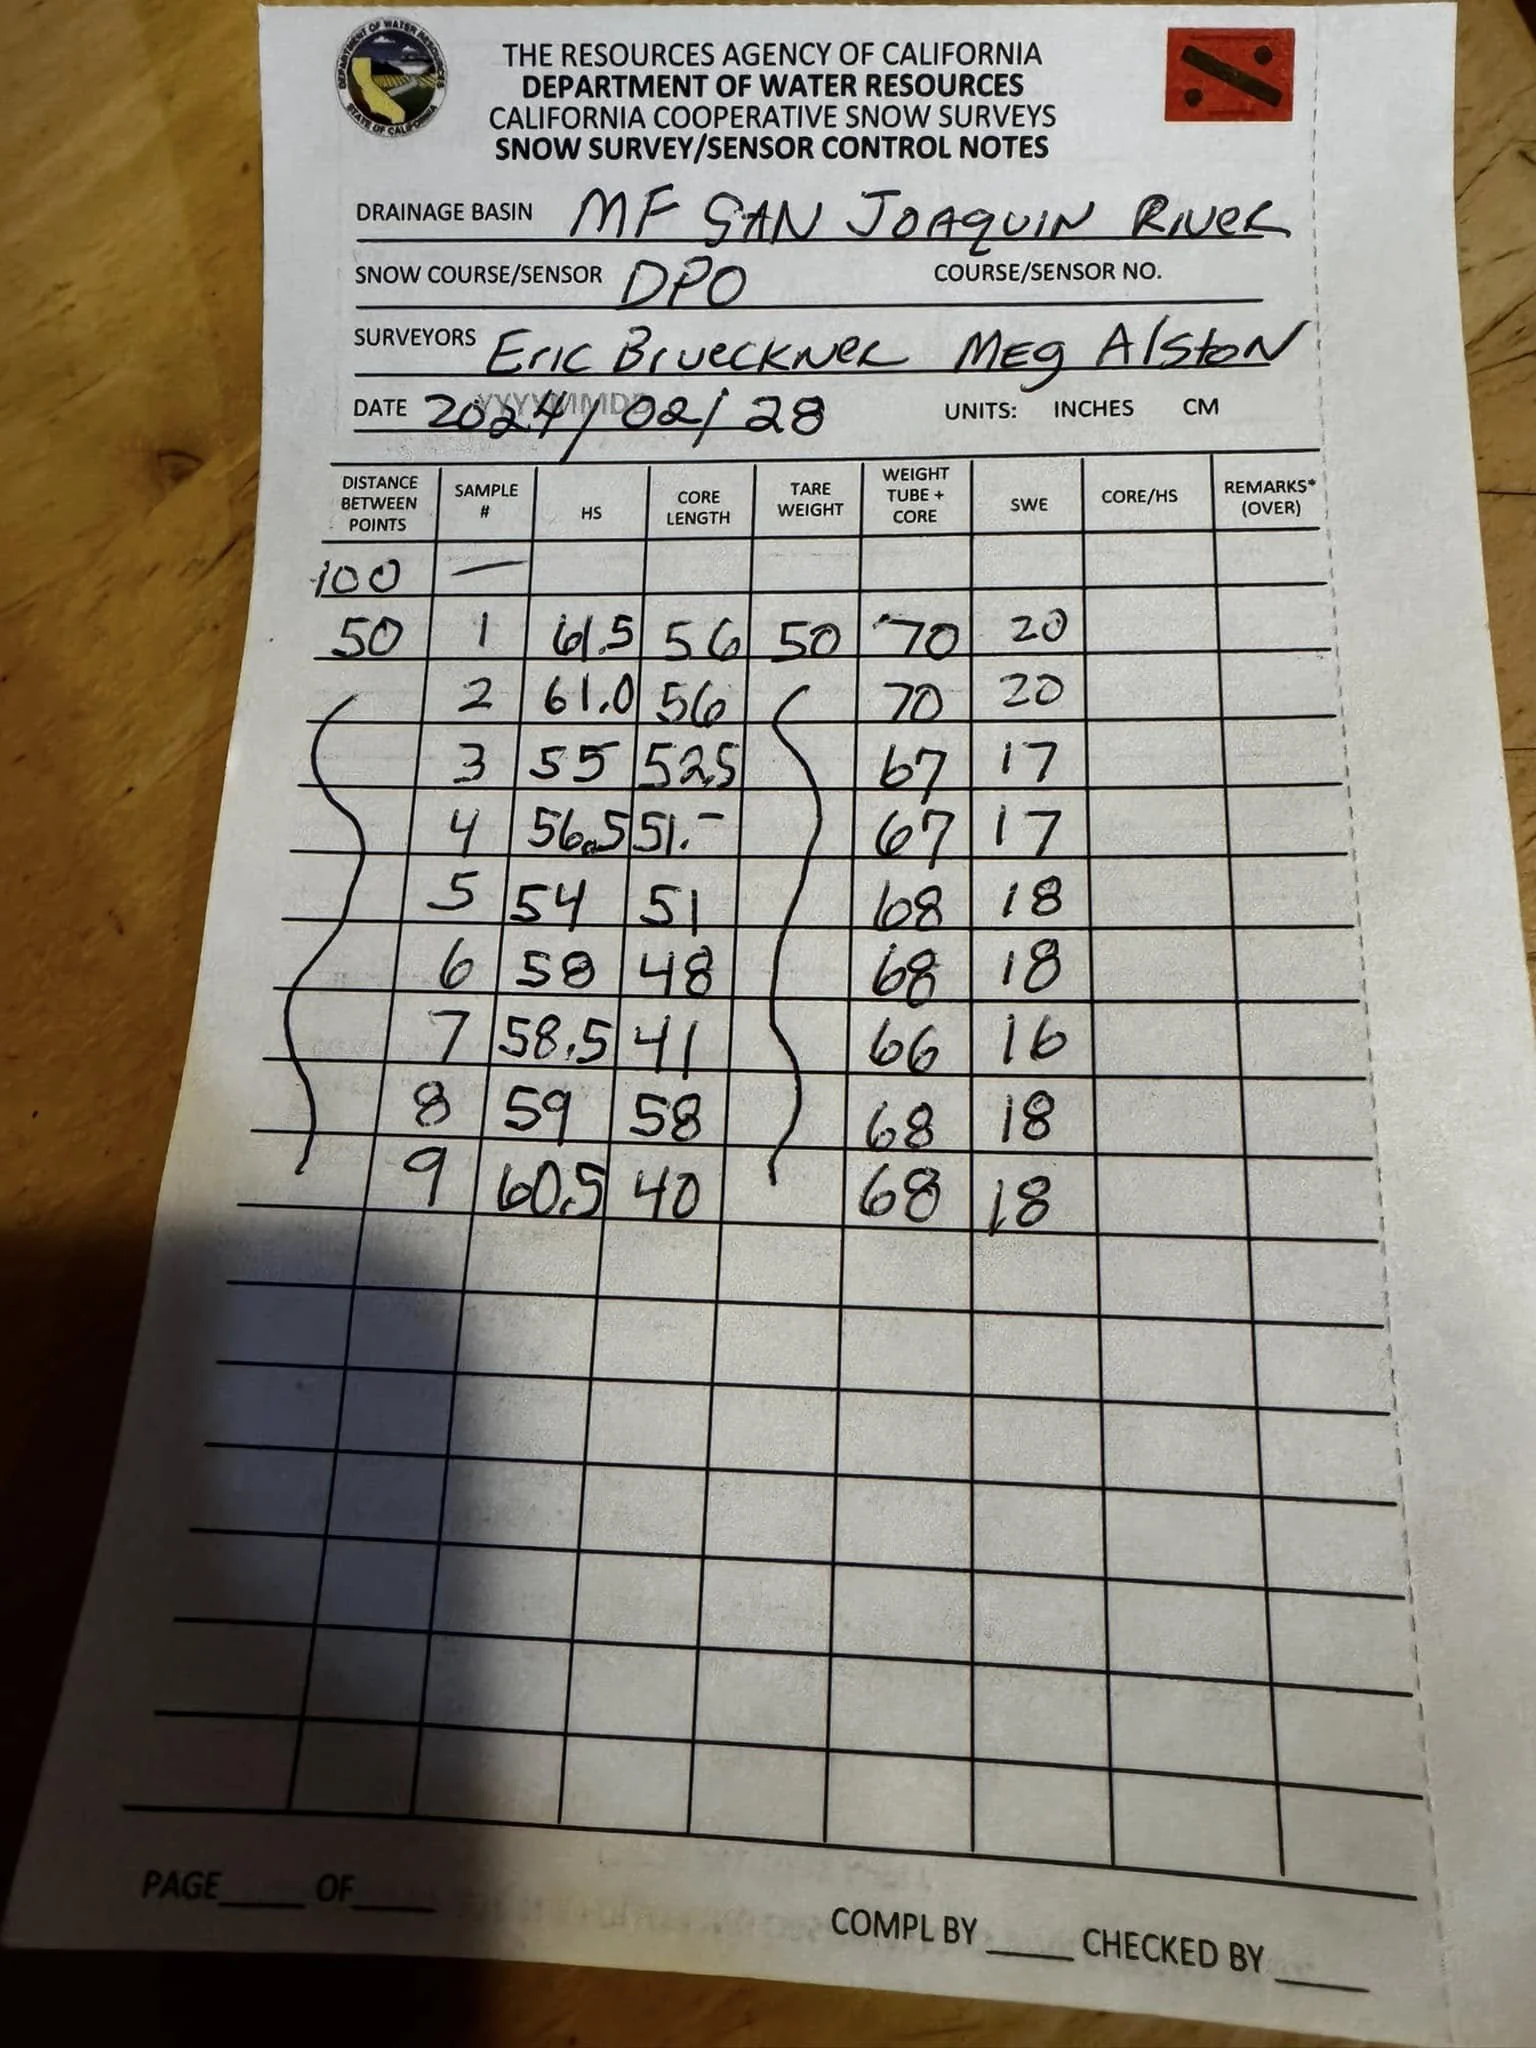 DEPARTMENT OF WATER RESOURCES
STATE OF CALIFORNIA
THE RESOURCES AGENCY OF CALIFORNIA
DEPARTMENT OF WATER RESOURCES
CALIFORNIA COOPERATIVE SNOW SURVEYS
SNOW SURVEY/SENSOR CONTROL NOTES
DRAINAGE BASIN MF SAN JOAQUIN RIVER
SNOW COURSE/SENSOR DPO COURSE/SENSOR NO.
SURVEYORS Eric Brueckner Meg Alston
DATE YYYYMMDD 2024/02/28 UNITS: INCHES CM
DISTANCE BETWEEN POINTS SAMPLE # HS CORE LENGTH TARE WEIGHT WEIGHT TUBE + CORE SWE CORE/HS REMARKS* (OVER)
100 —
50 1 61.5 56 50 70 20
2 61.0 56 70 20
3 55 52.5 67 17
4 56.5 51.- 67 17
5 54 51 68 18
6 58 48 68 18
7 58.5 41 66 16
8 59 58 68 18
9 60.5 40 68 18
PAGE____ OF____
COMPL BY ____ CHECKED BY ____